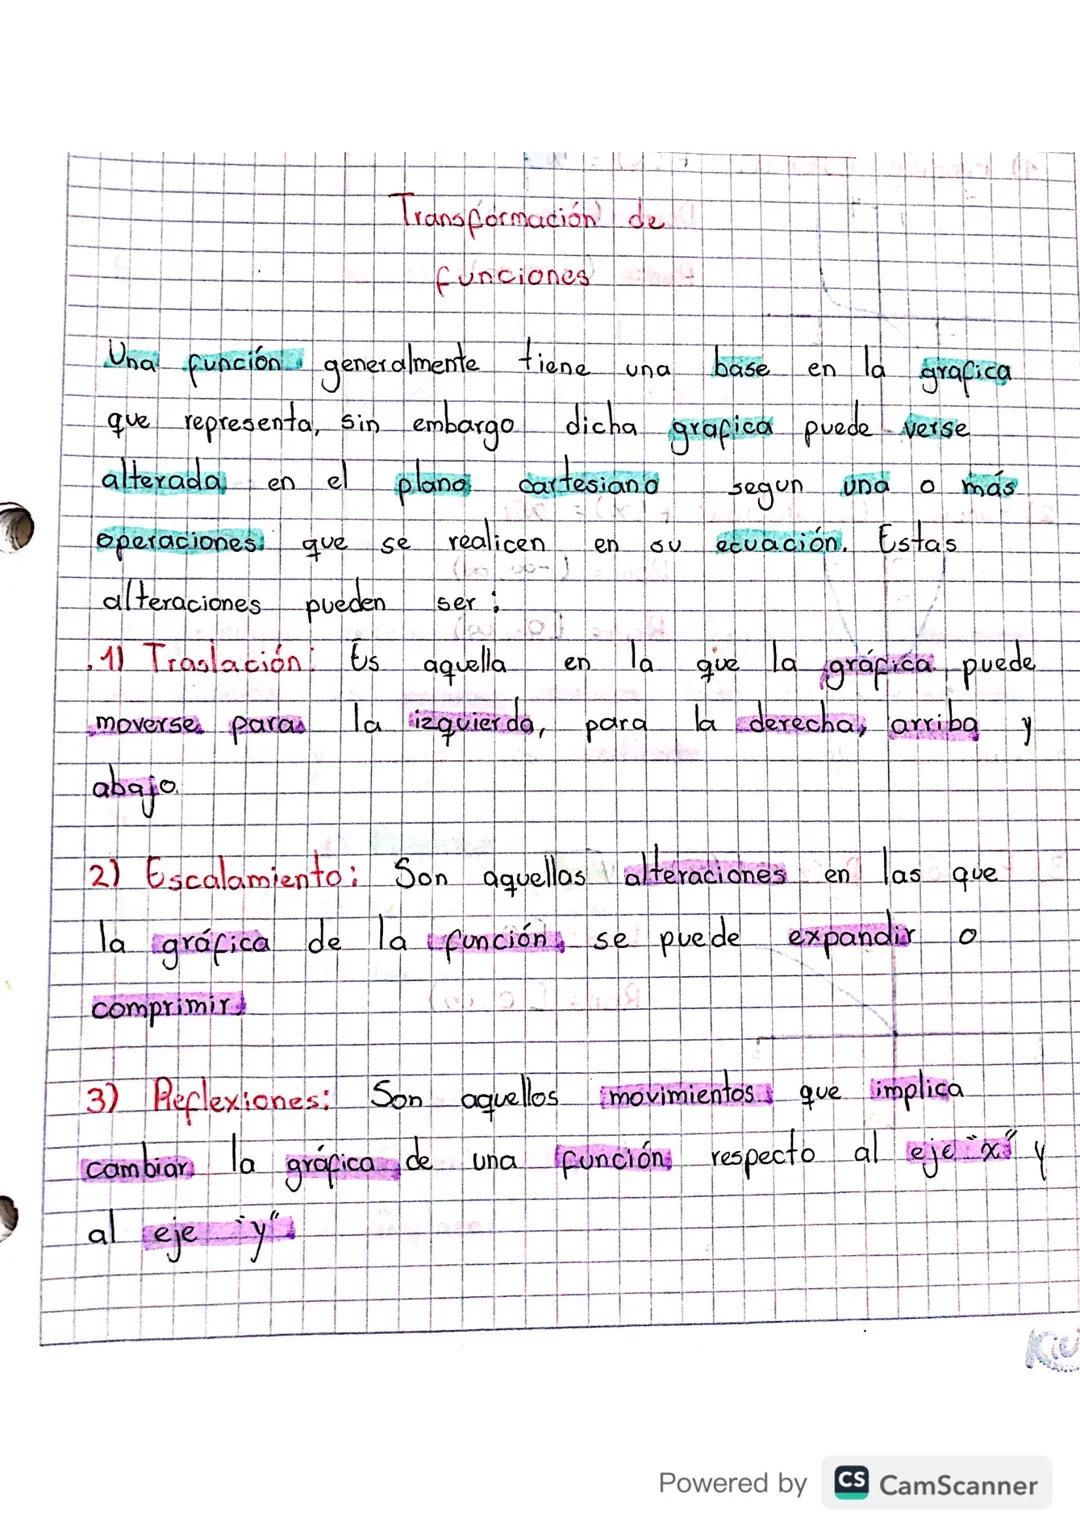 Transformación de
funciones
Una función generalmente tiene una base en la grafica
que representa, sin embargo dicha grafica puede verse
alterada en el plano cartesiano segun una o más
operaciones que se realicen en su ecuación. Estas
alteraciones pueden ser:
1) Traslación: Es aquella en la que la gráfica puede
moverse para la izquierda, para la derecha, arriba y
abajo.
2) Escalamiento: Son aquellas alteraciones en las que
la gráfica de la función se puede expandir o
comprimir.
3) Reflexiones: Son aquellos movimientos que implica
cambiar la gráfica de una función respecto al eje "x" y
al eje "y"
Powered by CS CamScanner